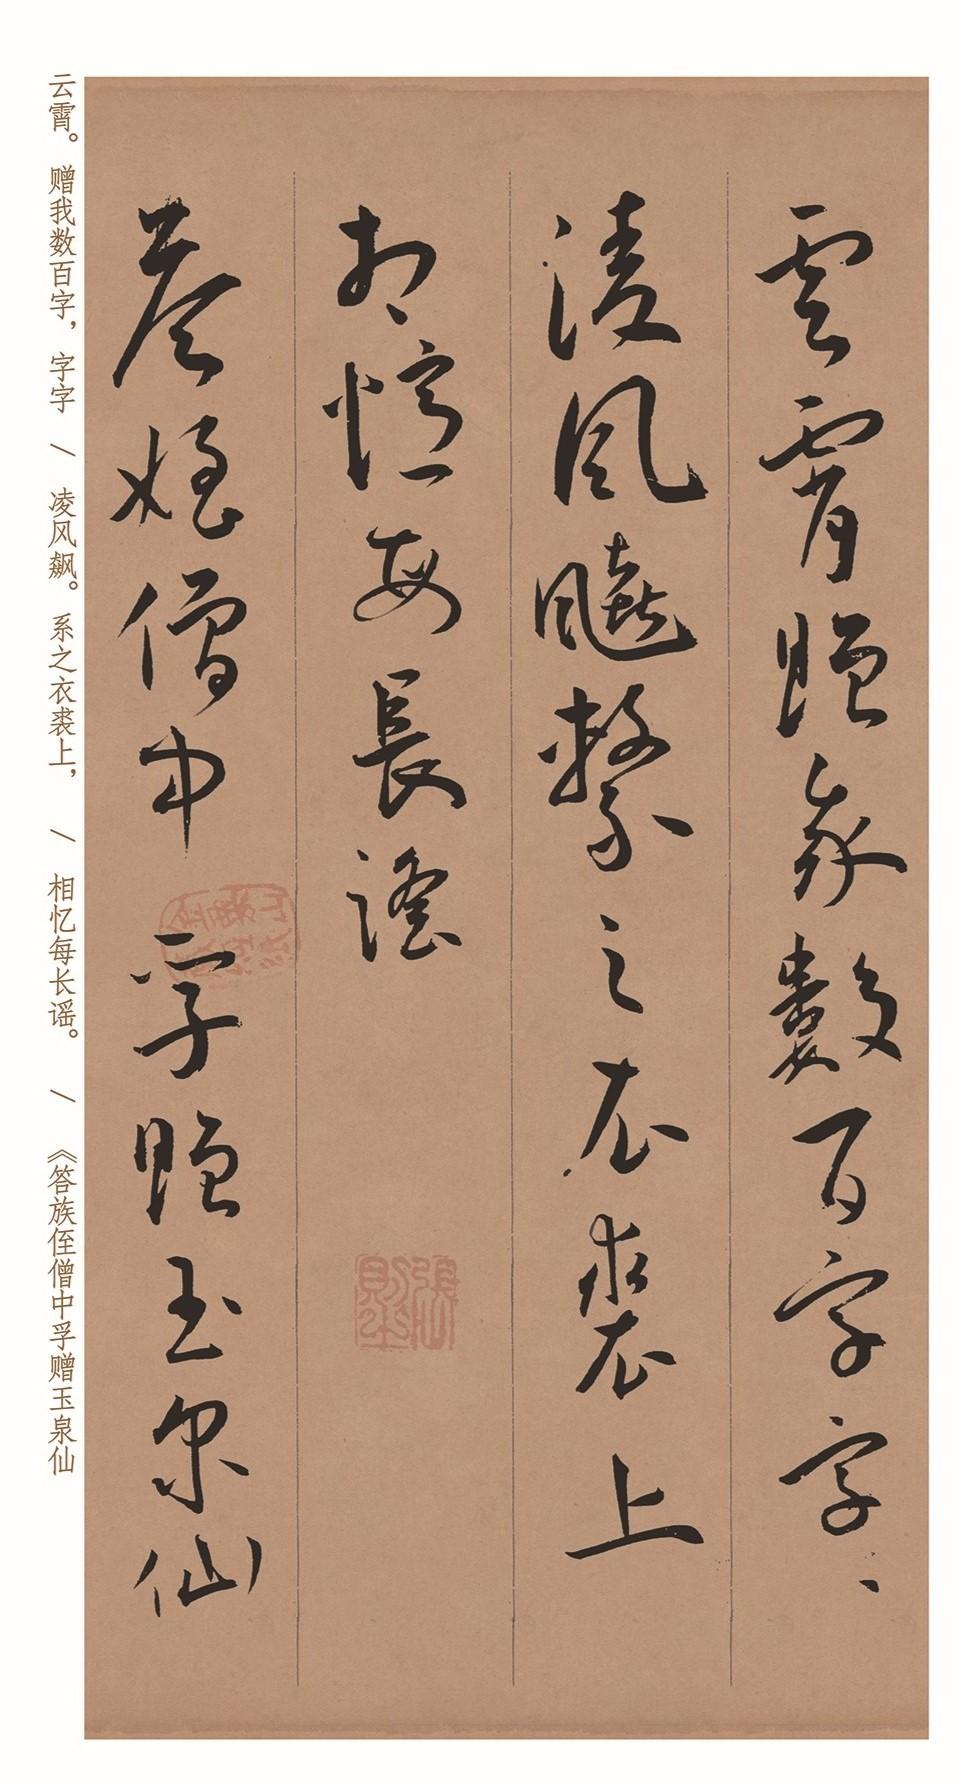 雲霄贈我數百字字、、
淩風飈繫之衣裘上
相憶每長謠
答姪僧中孚贈玉泉仙
云霄。赠我数百字，字字 / 凌风飙。系之衣裘上， / 相忆每长谣。 / 《答族侄僧中孚赠玉泉仙